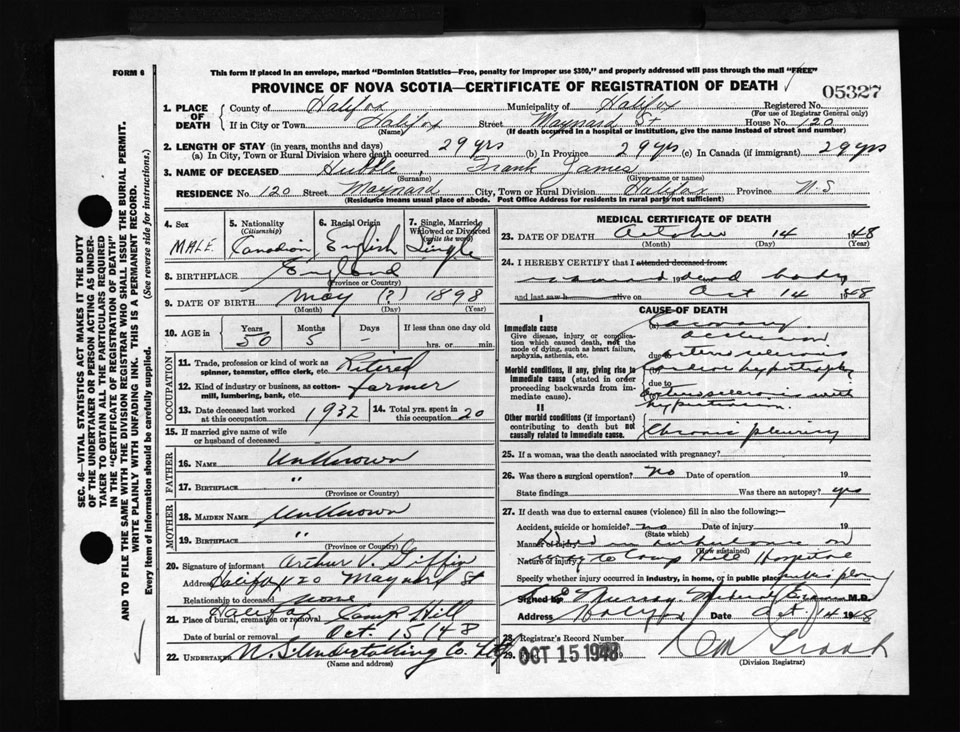 FORM 6
This form if placed in an envelope, marked "Dominion Statistics—Free, penalty for improper use $300," and properly addressed will pass through the mail "FREE"
PROVINCE OF NOVA SCOTIA—CERTIFICATE OF REGISTRATION OF DEATH
05327
1. PLACE OF DEATH
County of Halifax Municipality of Halifax Registered No.
(For use of Registrar General only)
If in City or Town Halifax Street Maynard St House No. 120
(Name) (If death occurred in a hospital or institution, give the name instead of street and number)
2. LENGTH OF STAY (in years, months and days)
(a) In City, Town or Rural Division where death occurred 29 yrs (b) In Province 29 yrs (c) In Canada (if immigrant) 29 yrs
3. NAME OF DECEASED Hubble, Frank James
(Surname) (Given name or names)
RESIDENCE No. 120 Street Maynard City, Town or Rural Division Halifax Province N.S
(Residence means usual place of abode. Post Office Address for residents in rural parts not sufficient)
4. Sex MALE
5. Nationality (Citizenship) Canadian
6. Racial Origin English
7. Single, Married, Widowed or Divorced (write the word) Single
8. BIRTHPLACE England
(Province or Country)
9. DATE OF BIRTH May (?) 1898
(Month) (Day) (Year)
10. AGE in Years Months Days If less than one day old
50 5 - hrs. or min.
OCCUPATION
11. Trade, profession or kind of work as spinner, teamster, office clerk, etc. Retired
12. Kind of industry or business, as cotton-mill, lumbering, bank, etc. farmer
13. Date deceased last worked at this occupation 1932
14. Total yrs. spent in this occupation 20
15. If married give name of wife or husband of deceased
FATHER
16. NAME Unknown
17. BIRTHPLACE "
(Province or Country)
MOTHER
18. MAIDEN NAME Unknown
19. BIRTHPLACE "
(Province or Country)
20. Signature of informant Arthur V. Giffin
Address Halifax 120 Maynard St
Relationship to deceased none
21. Place of burial, cremation or removal Halifax Camp Hill
Date of burial or removal Oct. 15/48
22. UNDERTAKER N.S. Undertaking Co. Ltd
(Name and address)
MEDICAL CERTIFICATE OF DEATH
23. DATE OF DEATH October 14 1948
(Month) (Day) (Year)
24. I HEREBY CERTIFY that I attended deceased from:
dead body
and last saw h alive on Oct 14 1948
CAUSE OF DEATH
I
Immediate cause
Give disease, injury or complication which caused death, not the mode of dying, such as heart failure, asphyxia, asthenia, etc.
(a) Coronary occlusion
due to
Morbid conditions, if any, giving rise to immediate cause (stated in order proceeding backwards from immediate cause).
due to
arteriosclerosis with hypertension
II
Other morbid conditions (if important) contributing to death but not causally related to immediate cause.
Chronic pleurisy
25. If a woman, was the death associated with pregnancy?
26. Was there a surgical operation? no Date of operation 19
State findings Was there an autopsy? yes
27. If death was due to external causes (violence) fill in also the following:—
Accident, suicide or homicide? no Date of injury 19
(State which)
Manner of injury Died in ambulance on
(How sustained)
Nature of injury way to Camp Hill Hospital
Specify whether injury occurred in industry, in home, or in public place public place
Signed by Murray M.D.
Address Date Oct. 14 1948
28. Registrar's Record Number
29. OCT 15 1948 19
(Division Registrar)
SEC. 46—VITAL STATISTICS ACT MAKES IT THE DUTY
OF THE UNDERTAKER OR PERSON ACTING AS UNDERTAKER
TO OBTAIN ALL THE PARTICULARS REQUIRED
IN THE "CERTIFICATE OF REGISTRATION OF DEATH"
AND TO FILE THE SAME WITH THE DIVISION REGISTRAR WHO SHALL ISSUE THE BURIAL PERMIT.
WRITE PLAINLY WITH UNFADING INK. THIS IS A PERMANENT RECORD.
Every item of information should be carefully supplied. (See reverse side for instructions.)